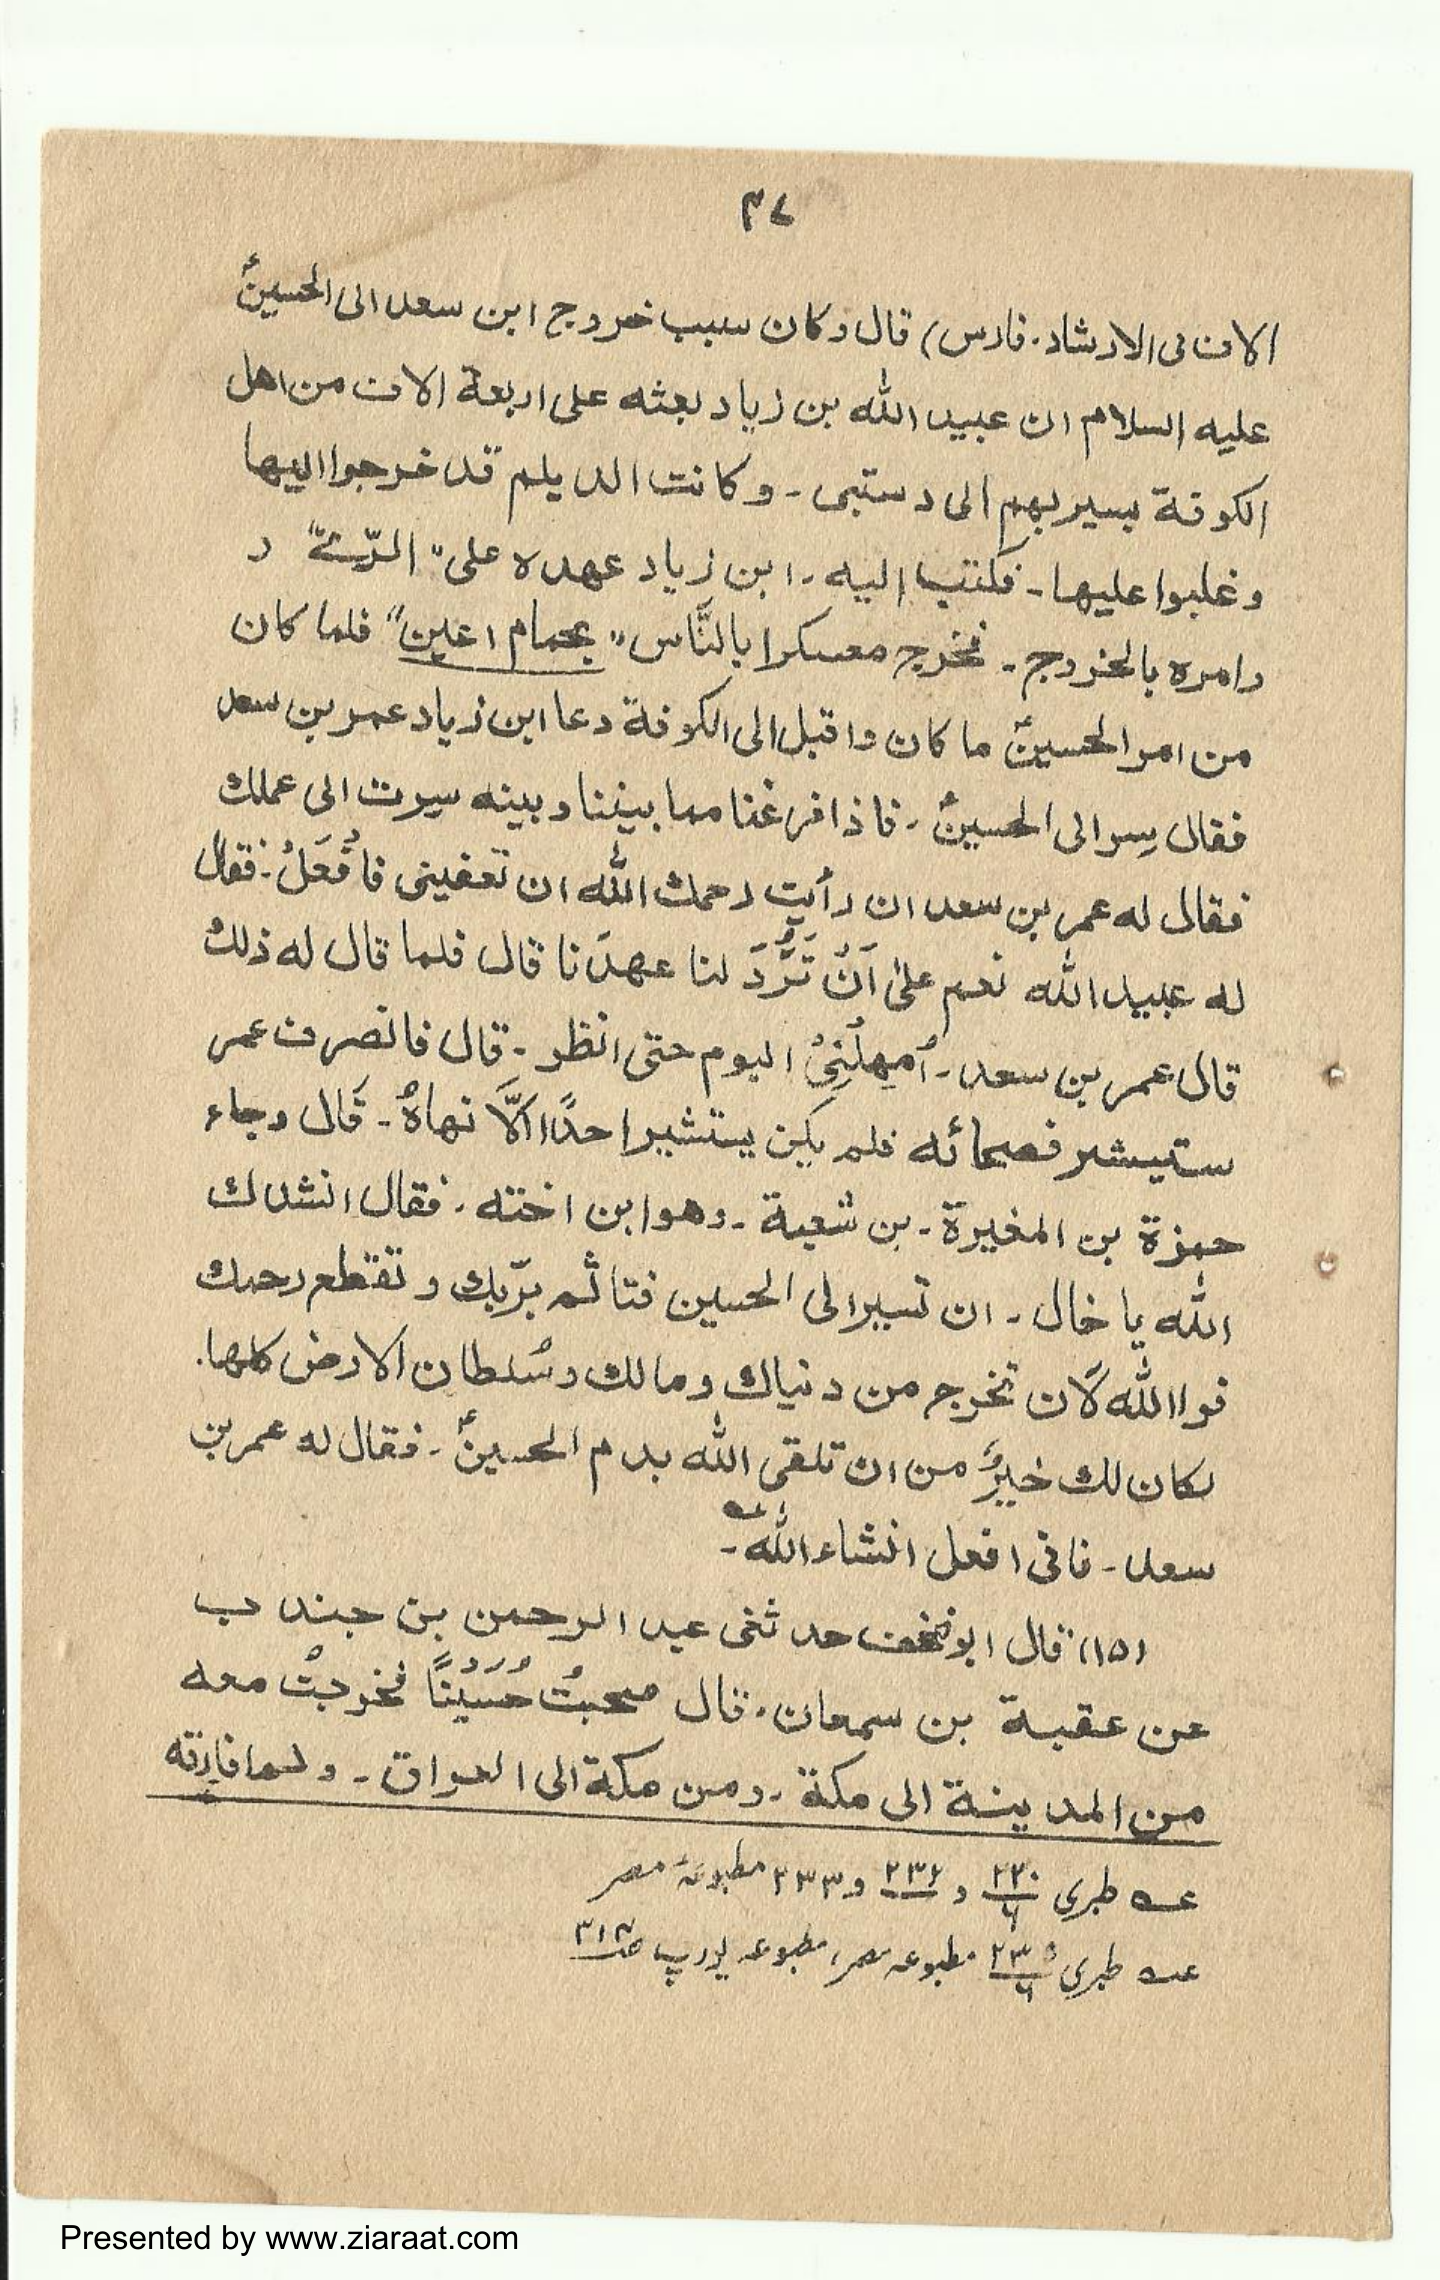 ٣٧
الاف فی الارشاد۔ فارس) قال وکان سبب خروج ابن سعد الی الحسینؑ
علیه السلام ان عبید الله بن زیاد بعثه علی اربعة الاف من اهل
الکوفة یسیر بهم الی دستبی۔ وکانت الدیلم قد خرجوا الیها
وغلبوا علیها۔ فکتب الیه۔ ابن زیاد عهده علی "الرّے" و
وامره بالخروج۔ فخرج معسکرا بالنَّاس "بحمام اعین" فلما کان
من امر الحسینؑ ما کان واقبل الی الکوفة دعا ابن زیاد عمر بن سعد
فقال سِر الی الحسینؑ۔ فاذا فرغنا مما بیننا وبینه سیرت الی عملک
فقال له عمر بن سعد ان رأیت رحمک الله ان تعفینی فافْعَلْ۔ فقال
له عبید الله نعم علیٰ اَنْ تَرُّدَ لنا عهدَنا قال فلما قال له ذلک
قال عمر بن سعد۔ اُمهِلْنِیْ الیوم حتی انظر۔ قال فانصرف عمر
ستیشیر فصحائه فلم یکن یستشیر احدًا الَّا نهاهُ۔ قَال وجاء
حمزة بن المغیرة۔ بن شعبة۔ وهو ابن اخته۔ فقال انشدک
الله یا خال۔ ان تسیر الی الحسین فتاثم برّبک وتقطع رحمک
فوا الله لَان تخرج من دنیاک ومالک وسُلطان الارض کلها۔
لکان لک خیرٌ من ان تلقی الله بدم الحسینؑ۔ فقال له عمر بن
سعد۔ فانی افعل انشاء الله۔
(١٥) قال ابو مخنف حدثنی عبد الرحمن بن جندب
عن عقبة بن سمعان۔ قال صحبتُ حُسَیْنًا فخرجتُ معه
من المدینة الی مکة۔ ومن مکة الی العراق۔ ولم افارقه
عـه طبری ٢٣٠/٦ و ٢٣٢ و ٢٣٣ مطبوعۂ مصر
عـه طبری ٢٣٥/٦ مطبوعہ مصر، مطبوعہ یورپ ص٣١٣
Presented by www.ziaraat.com